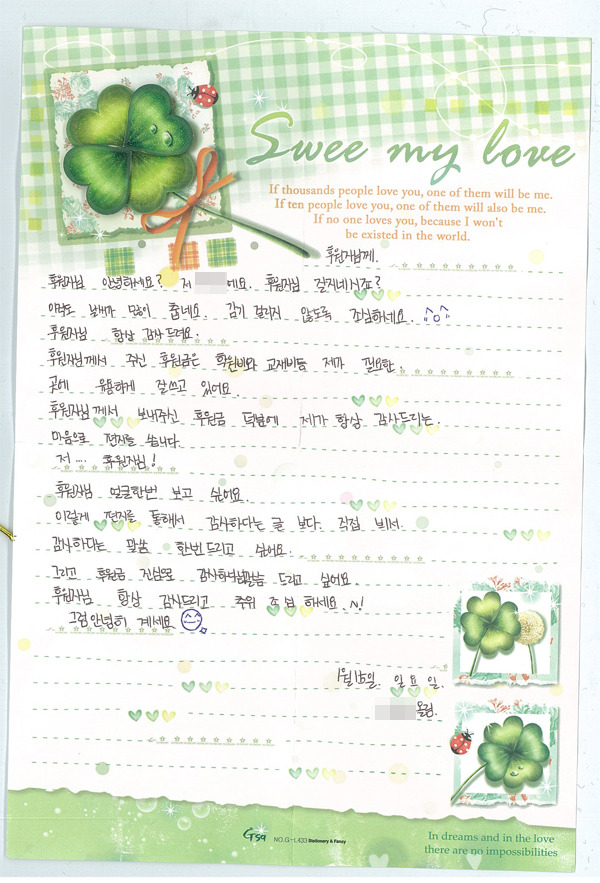 Swee my love
If thousands people love you, one of them will be me.
If ten people love you, one of them will also be me.
If no one loves you, because I won't
be existed in the world.
후원자님께.
후원자님 안녕하세요? 저 에요. 후원자님 잘지내시죠?
이젠 날씨가 많이 춥네요. 감기 걸리지 않도록 조심하세요.
후원자님 항상 감사드려요.
후원자님께서 주신 후원금은 학원비와 교재비등 제가 필요한.
곳에 유용하게 잘쓰고 있어요.
후원자님께서 보내주신 후원금 덕분에 제가 항상 감사드리는.
마음으로 편지를 씁니다.
저.... 후원자님!
후원자님 얼굴한번 보고 싶어요.
이렇게 편지를 통해서 감사하다는 글 보다. 직접 뵈서.
감사하다는 말씀 한번드리고 싶어요.
그리고 후원금 진심으로 드리고 싶어요.
후원자님 항상 감사드리고 추위 조심 하세요.
그럼안녕히 계세요.
1월 15일. 일요일.
올림.
Gsg NO.G-L433 Stationery & Fancy
In dreams and in the love
there are no impossibilities